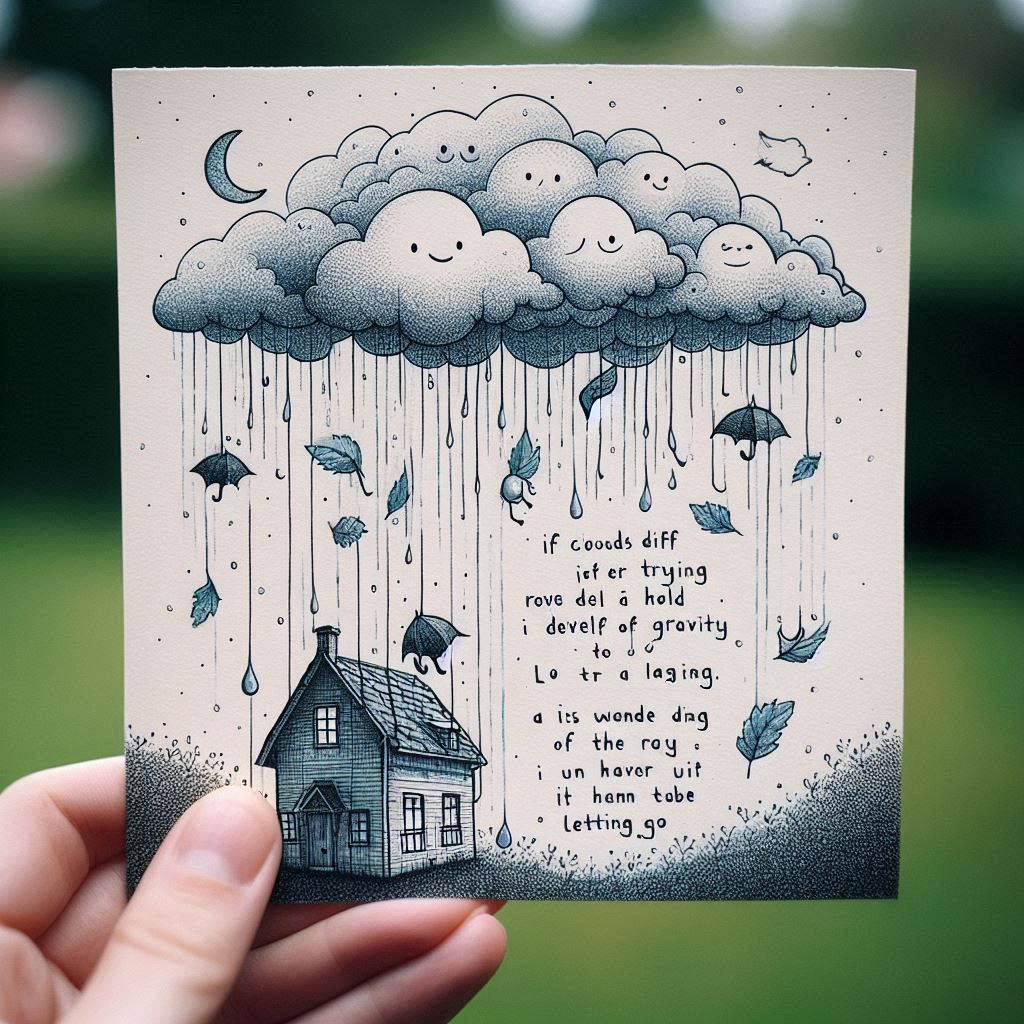 if coouds diff
ief er trying
rove del ā hold
i develf of gravity
to
Lo tr a laging.
a its wonde dag
of the roy.
i un haver uif
it hann tobe
letting go